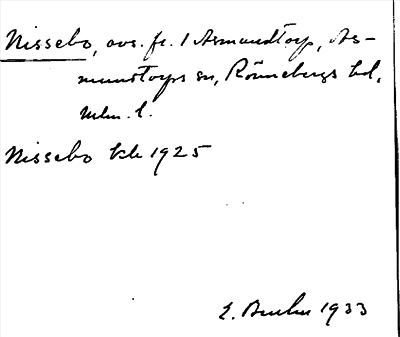 Nissebo, avs. fr. 1 Asmundtorp, As-
mundtorps sn, Rönnebergs hd,
Mlm. l.
Nissebo kb 1925
E. 1933